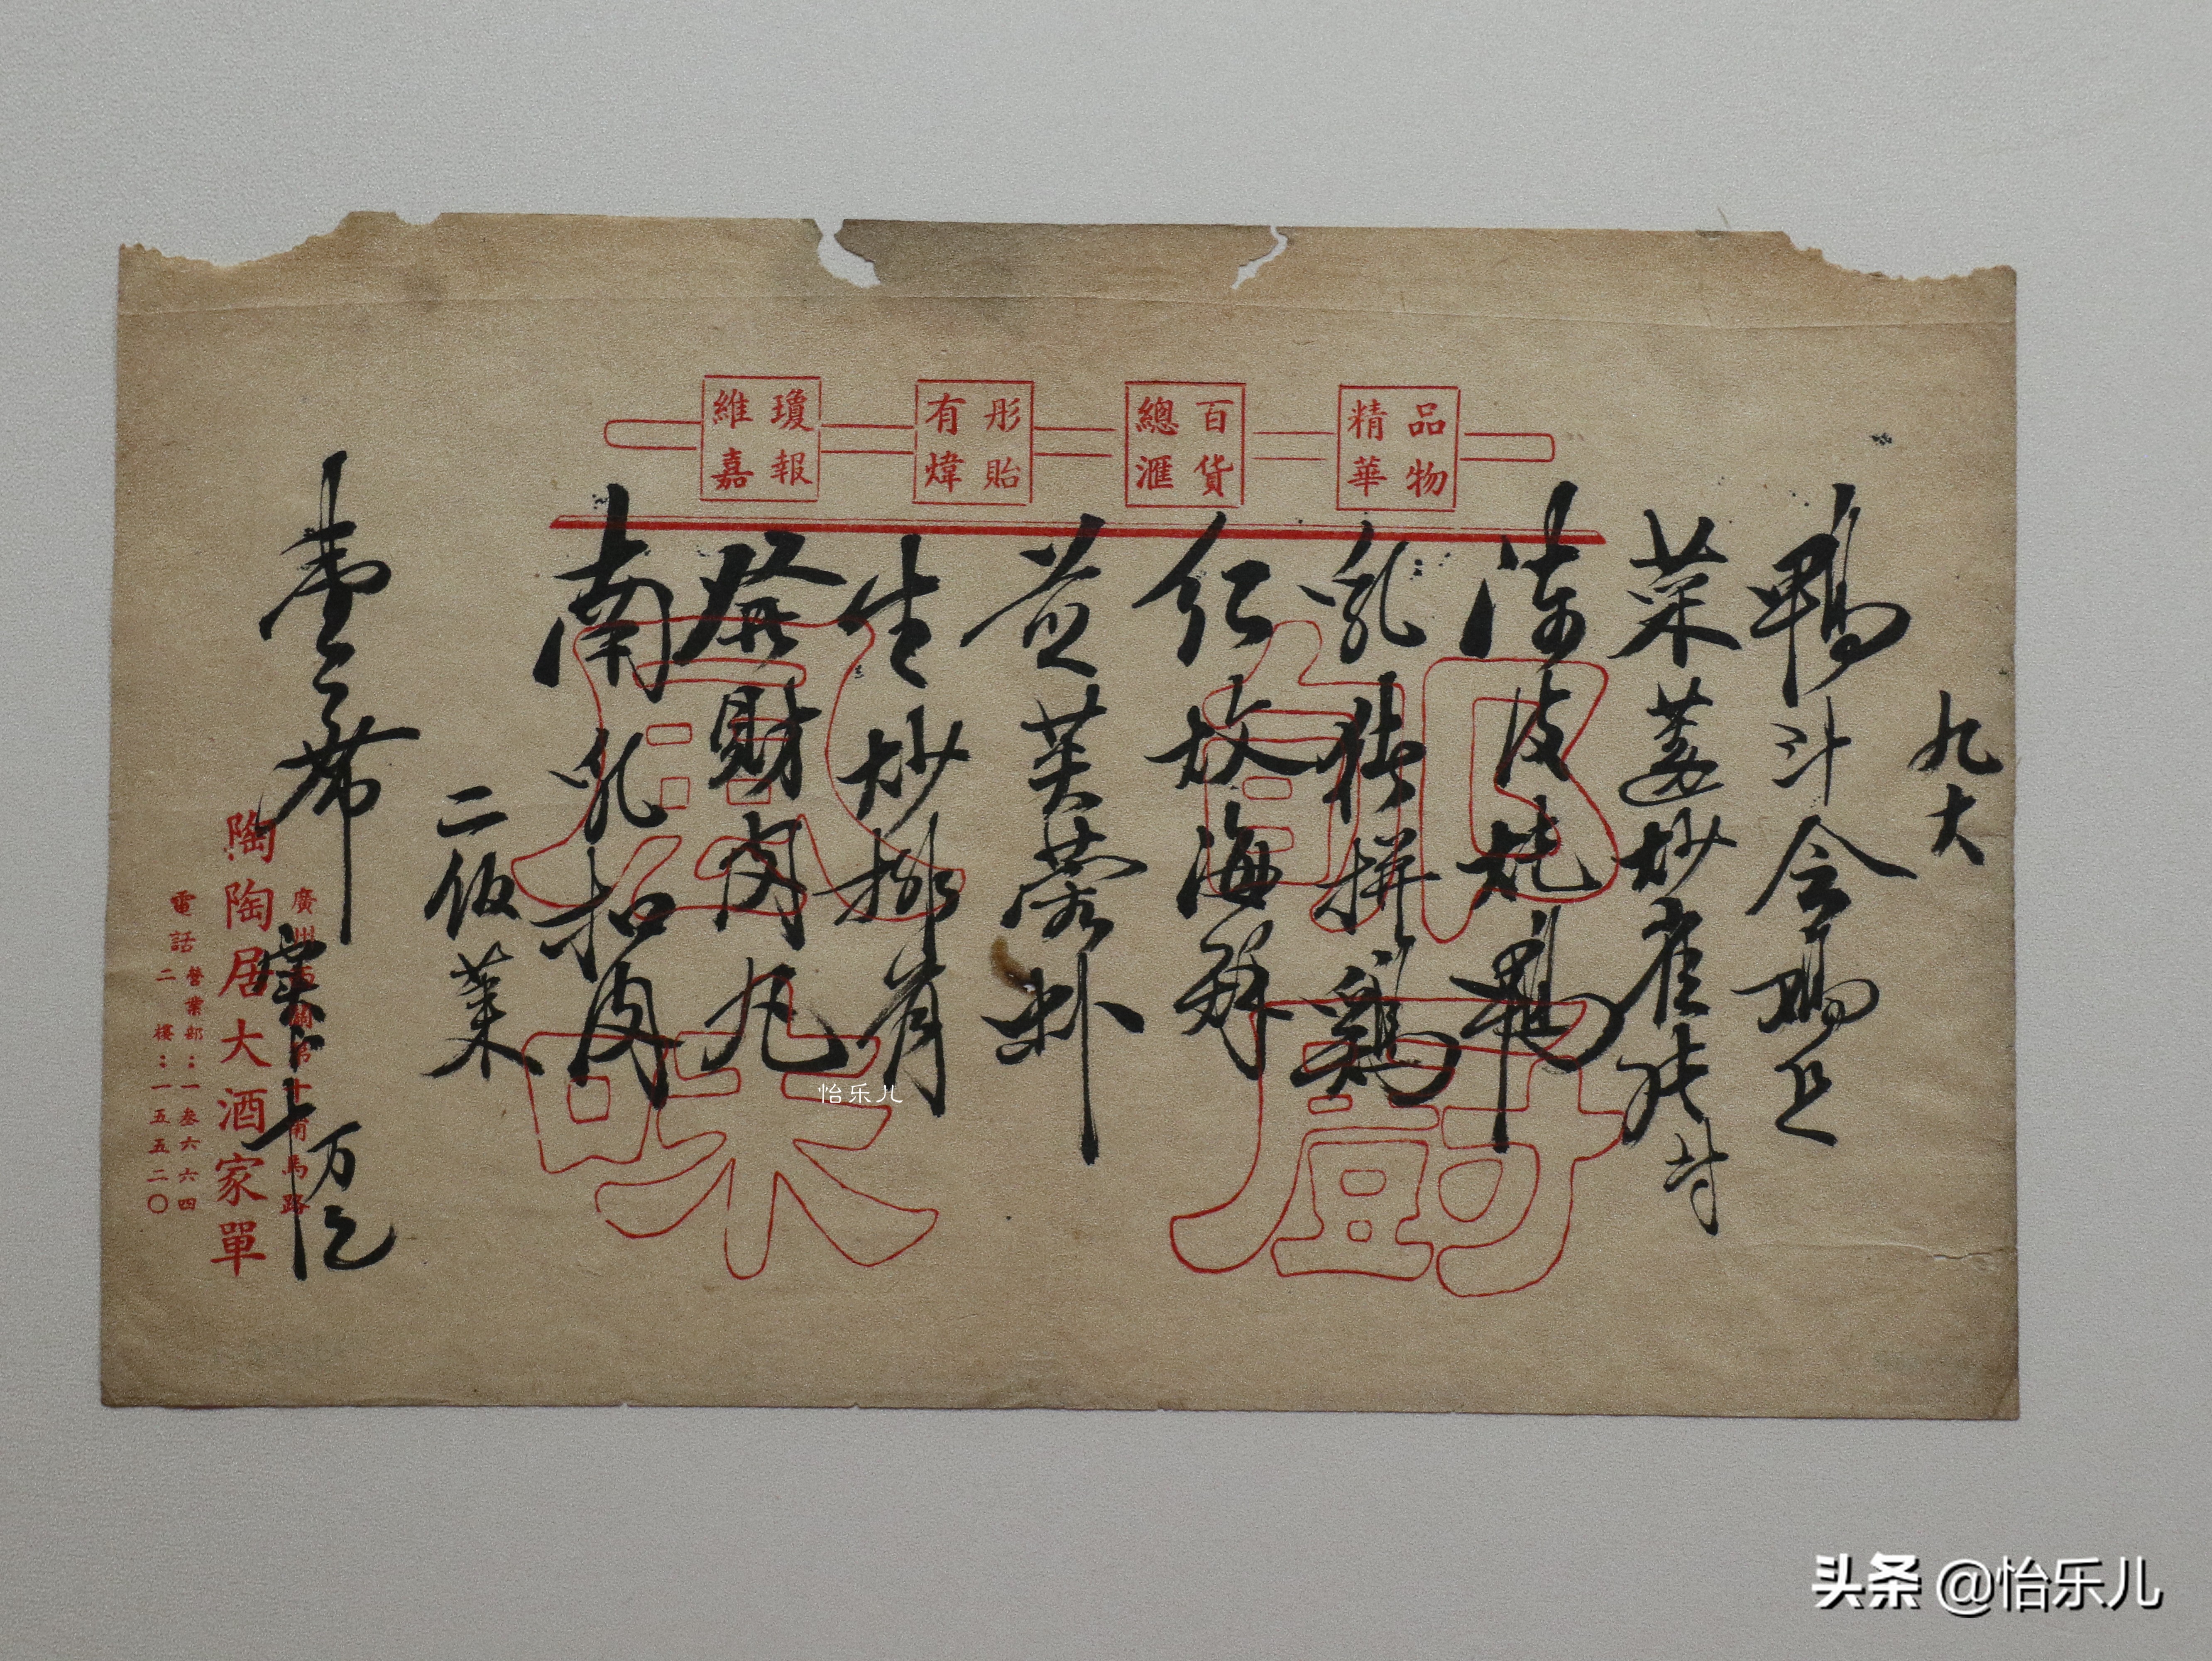 品物精華
百貨總滙
彤貽有煒
瓊報維嘉
郇廚
風味
九大
鴨
菜薳炒雀
陳皮炖鴨
乳猪拼鷄
紅炆海
芙蓉
生炒排骨
發財肉丸
南乳扣肉
二飯菜
壹席
万
廣州
陶陶居大酒家單
電話
營業部：一叁六六四
二樓：一五五二〇
怡乐儿
头条 @怡乐儿